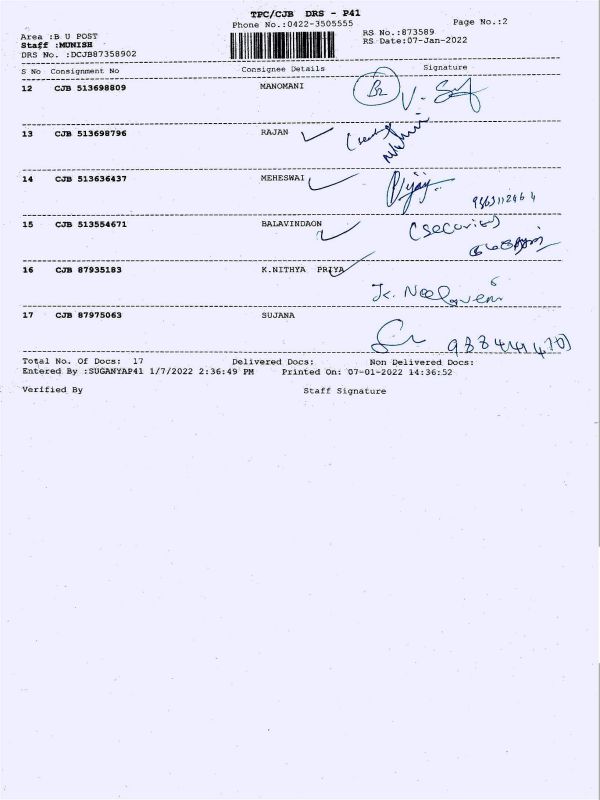 TPC/CJB DRS - P41
Phone No.:0422-3505555
Page No.:2
Area :B U POST
RS No.:873589
Staff :MUNISH
RS Date:07-Jan-2022
DRS No. :DCJB87358902
S No Consignment No Consignee Details Signature
12 CJB 513698809 MANOMANI
13 CJB 513698796 RAJAN
14 CJB 513636437 MEHESWAI
Vijay
15 CJB 513554671 BALAVINDAON
16 CJB 87935183 K.NITHYA PRIYA
17 CJB 87975063 SUJANA
Total No. Of Docs: 17 Delivered Docs: Non Delivered Docs:
Entered By :SUGANYAP41 1/7/2022 2:36:49 PM Printed On: 07-01-2022 14:36:52
Verified By Staff Signature